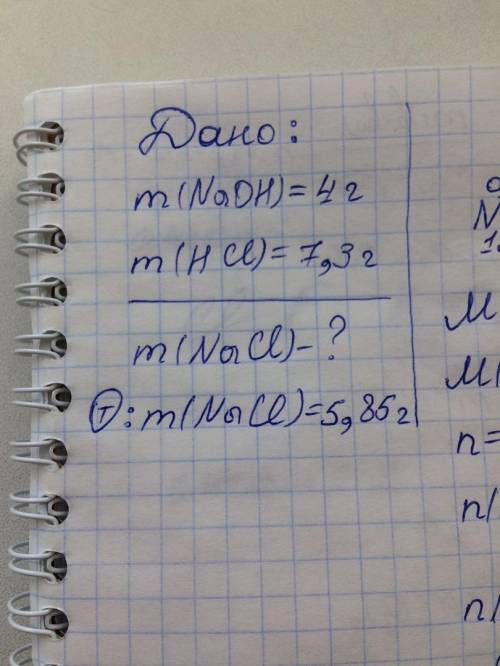 Дано:
m(NaOH)=4г
m(HCl)=7,3г
m(NaCl)-?
Т: m(NaCl)=5,85г
N
M
M(
n=
n(
n(